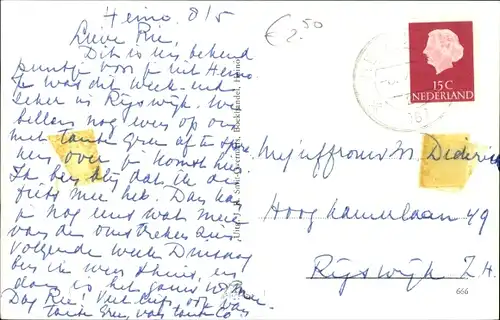 Heino. 8/5
Lieve Rie,
Dit is un bekend
puntje voor je uit Heino
Je was dit week-end
zeker in Rijswijk. We
bellen nog even op om
met tante Gien af te spre
ken over je komst hier.
Ik ben blij dat ik de
fiets mee heb. Dan kan
je nog eens wat meer
van de omstreken zien
Volgende week Dinsdag
ben ik weer thuis, en
dan is het gauw
Dag Rie! Veel liefs, ook van
tante Gien, van tante Co
Mejuffrouw M. Diderich
Hoog kamerlaan 49
Rijswijk Z.H.
15C
NEDERLAND
€ 2.50
666